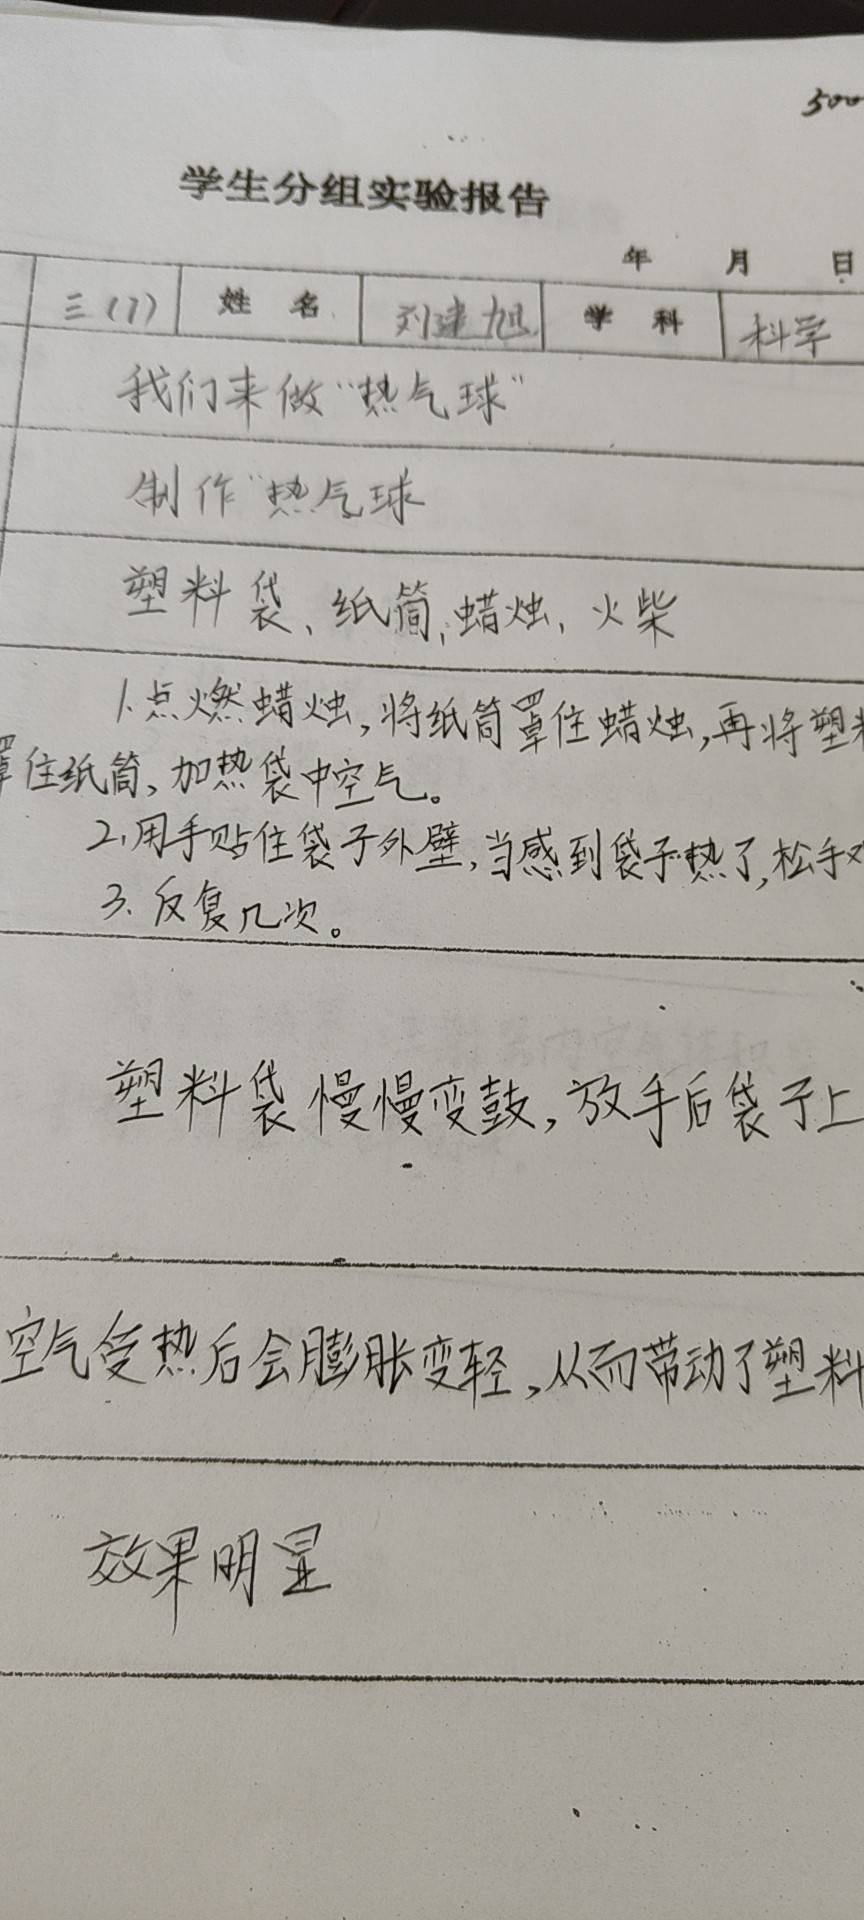 500
学生分组实验报告
年 月 日
三(1) 姓 名 刘建旭 学 科 科学
我们来做“热气球”
制作“热气球
塑料袋、纸筒,蜡烛,火柴
1.点燃蜡烛,将纸筒罩住蜡烛,再将塑料
罩住纸筒、加热袋中空气。
2.用手贴住袋子外壁,当感到袋子热了,松手
3.反复几次。
塑料袋慢慢变鼓,放手后袋子上
空气受热后会膨胀变轻,从而带动了塑料
效果明显